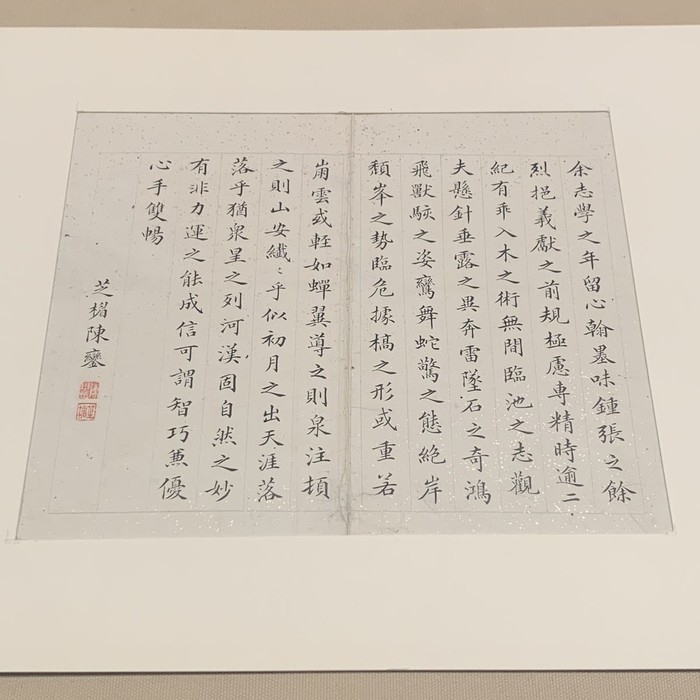 余志學之年留心翰墨味鍾張之餘
烈挹羲獻之前規極慮專精時逾二
紀有乖入木之術無間臨池之志觀
夫懸針垂露之異奔雷墜石之奇鴻
飛獸駭之姿鸞舞蛇驚之態絕岸
頹峯之勢臨危據槁之形或重若
崩雲或輕如蟬翼導之則泉注頓
之則山安纖〻乎似初月之出天涯落
落乎猶眾星之列河漢同自然之妙
有非力運之能成信可謂智巧兼優
心手雙暢
芝楣陳鑾